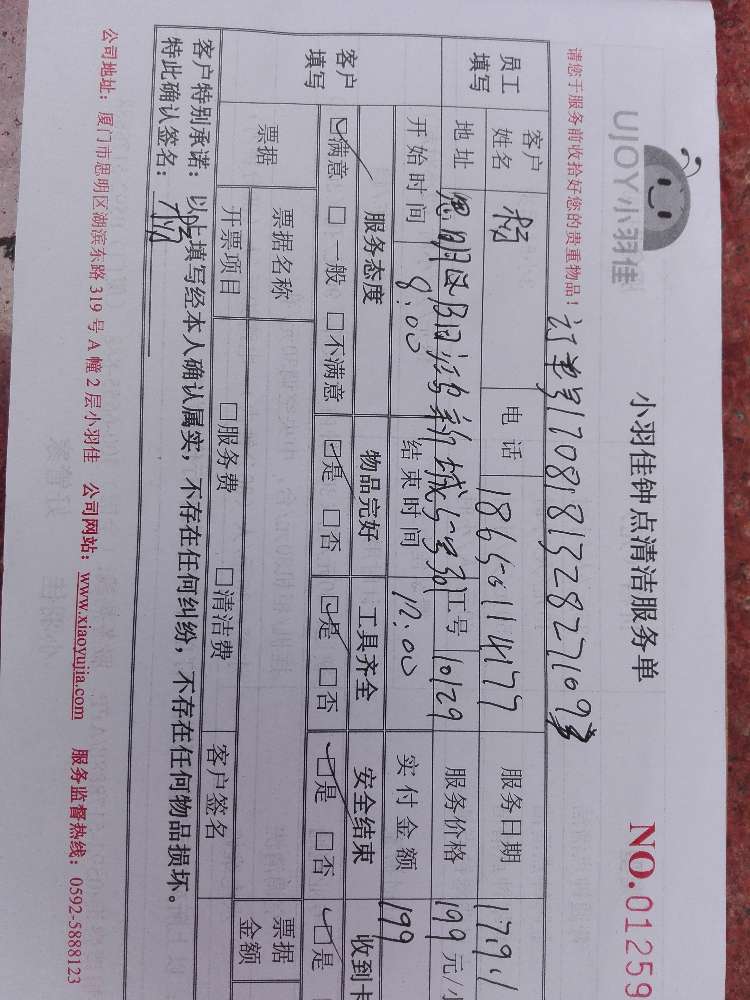 UJOY小羽佳
小羽佳钟点清洁服务单
NO.01259
请您于服务前收拾好您的贵重物品！
订单号17081813282710
员工填写
客户姓名 杨 电话 服务日期 17.9.1
地址 思明区 新城 工号 10129 服务价格 199 元/小
开始时间 8:00 结束时间 12:00 实付金额 199
客户填写
服务态度 物品完好 工具齐全 安全结束 收到卡
☑满意 □一般 □不满意 ☑是 □否 ☑是 □否 ☑是 □否 ☑是
票据 票据名称 票据金额
开票项目 □服务费 □清洁费 客户签名
客户特别承诺：以上填写经本人确认属实，不存在任何纠纷，不存在任何物品损坏。
特此确认签名：杨
公司地址：厦门市思明区湖滨东路 319 号 A 幢 2 层小羽佳 公司网站：www.xiaoyujia.com 服务监督热线：0592-5888123